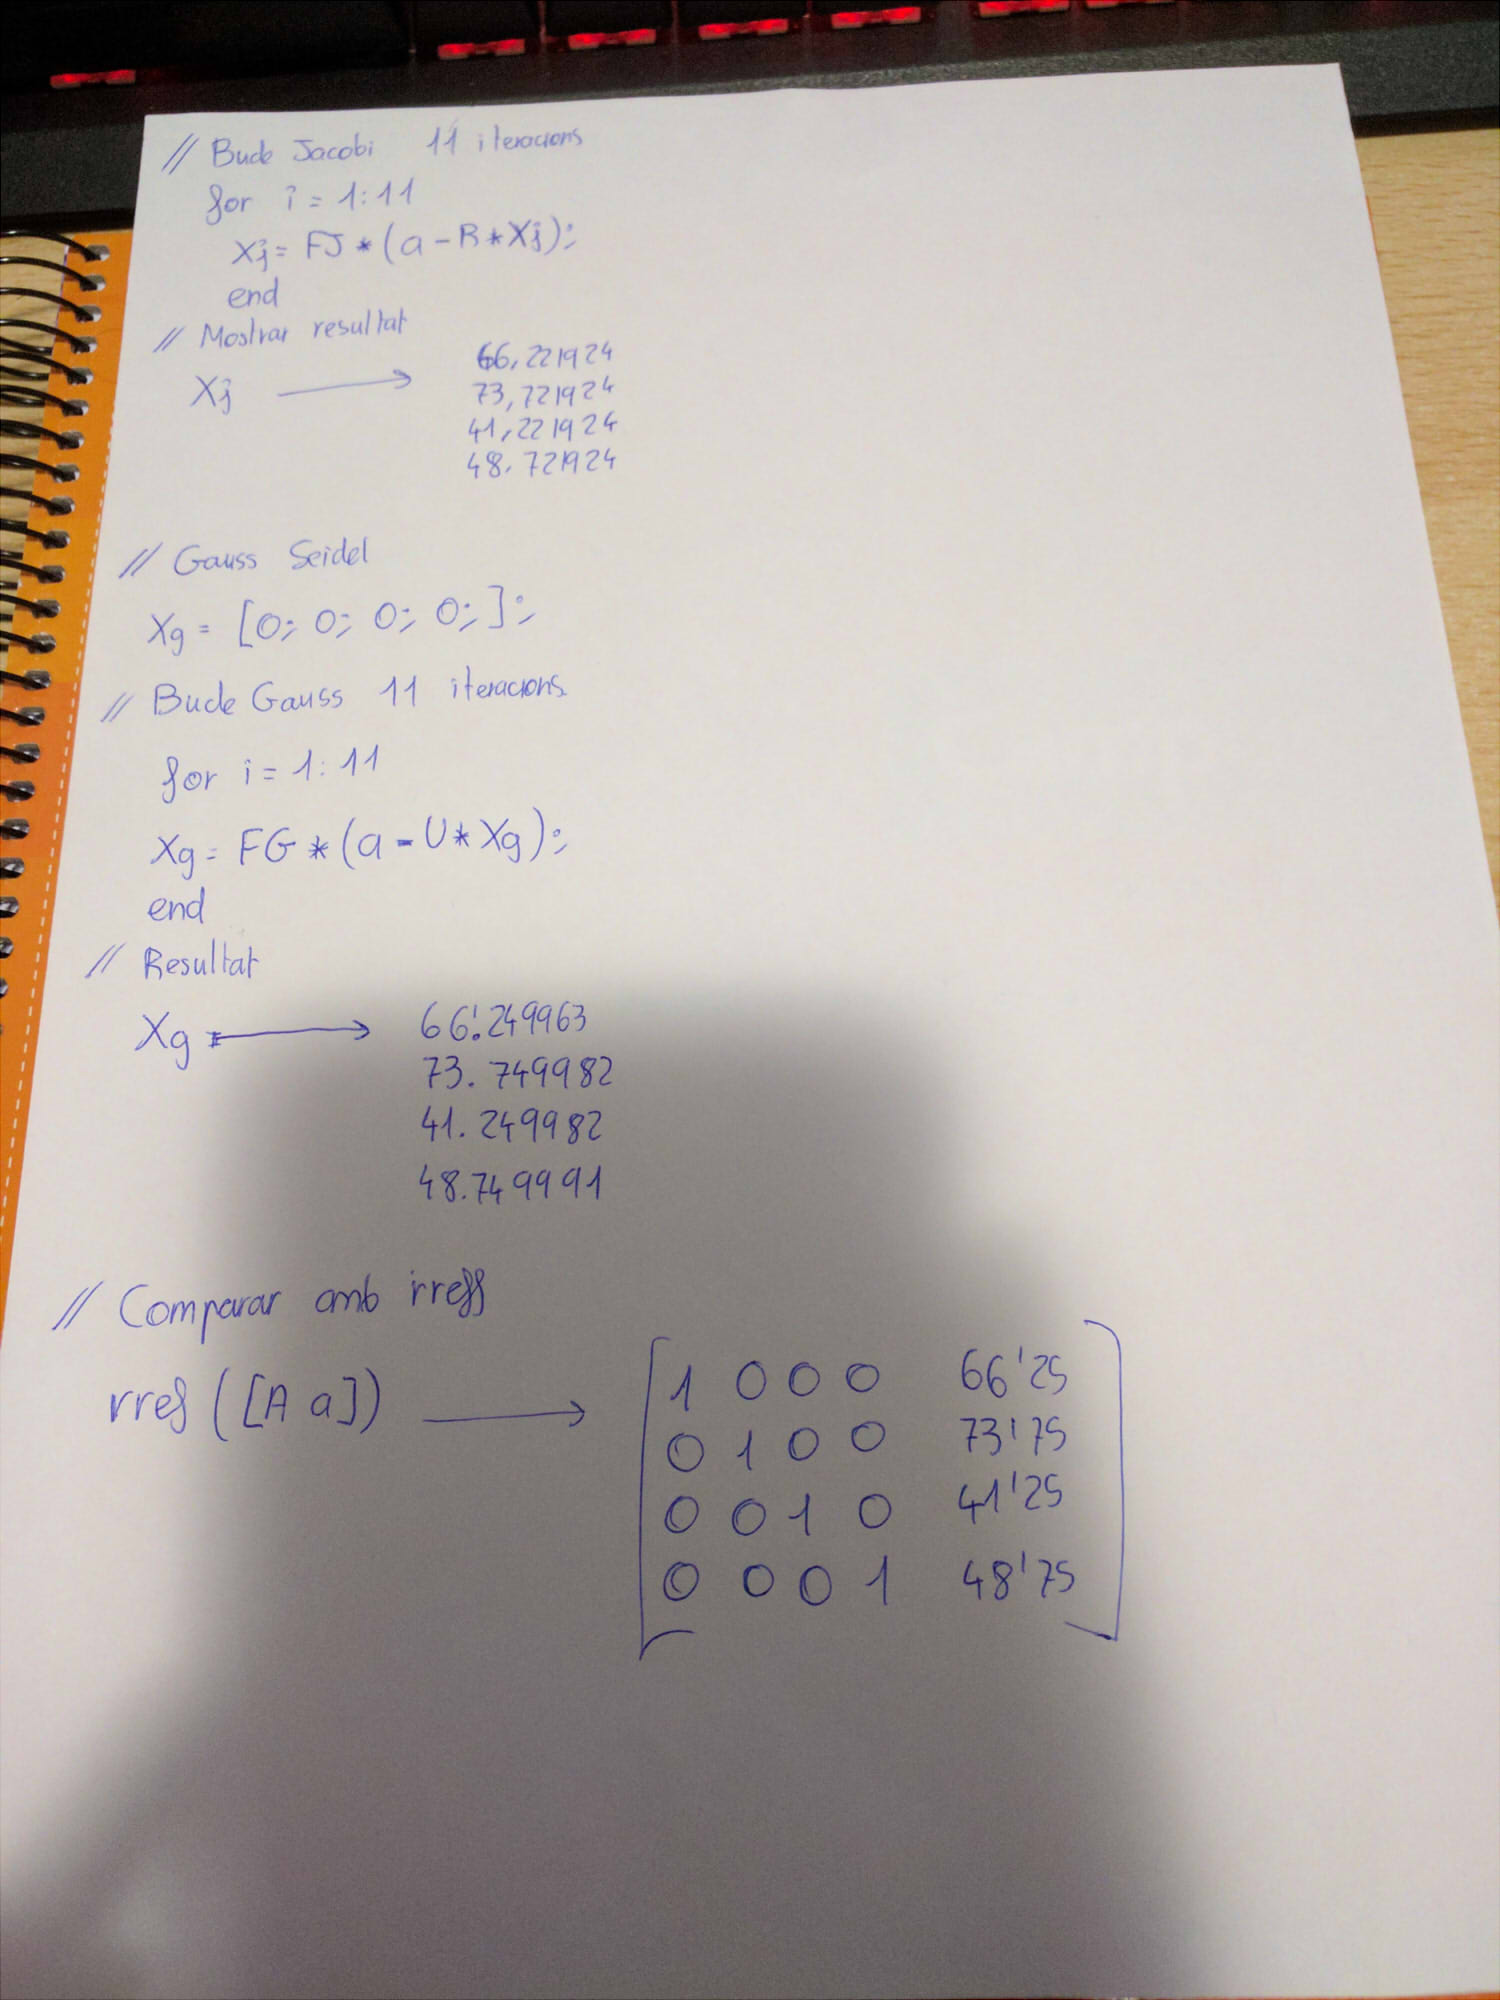 // Bucle Jacobi 11 iteracions
for i = 1:11
Xj = FJ * (a - R * Xj);
end
// Mostrar resultat
Xj → 66,221924
73,721924
41,221924
48.721924
// Gauss Seidel
Xg = [0; 0; 0; 0;];
// Bucle Gauss 11 iteracions.
for i = 1:11
Xg = FG * (a - U * Xg);
end
// Resultat
Xg → 66'.249963
73.749982
41.249982
48.749991
// Comparar amb irreff
rref ([A a]) →
1 0 0 0 66'25
0 1 0 0 73'75
0 0 1 0 41'25
0 0 0 1 48'75